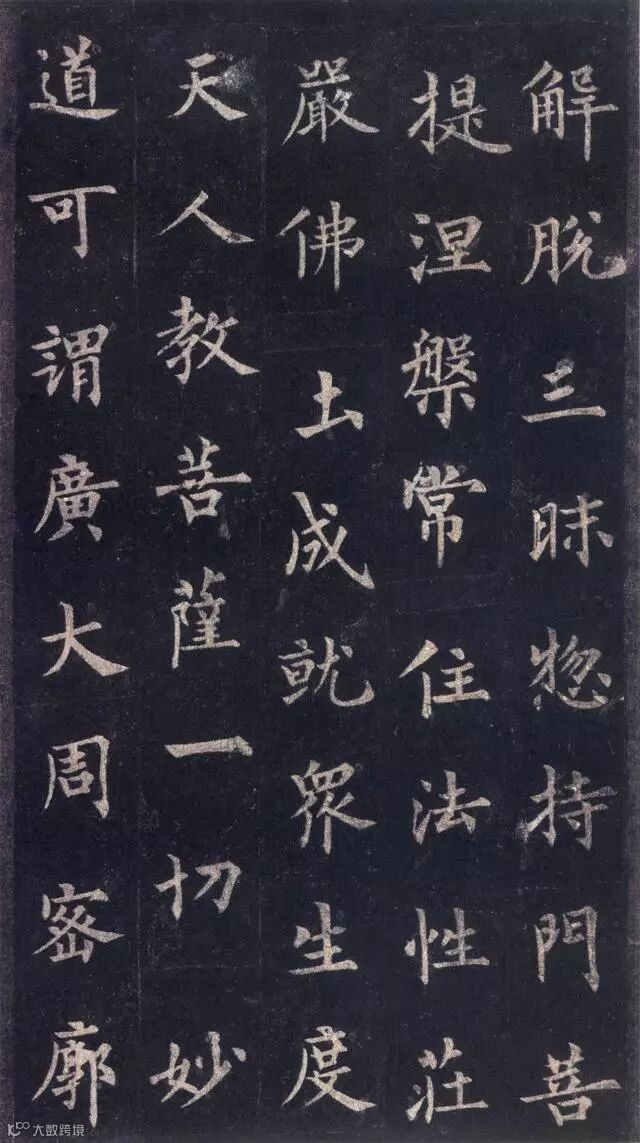 解脫三昧惣持門菩
提涅槃常住法性莊
嚴佛土成就眾生度
天人教菩薩一切妙
道可謂廣大周密廓
大数跨境